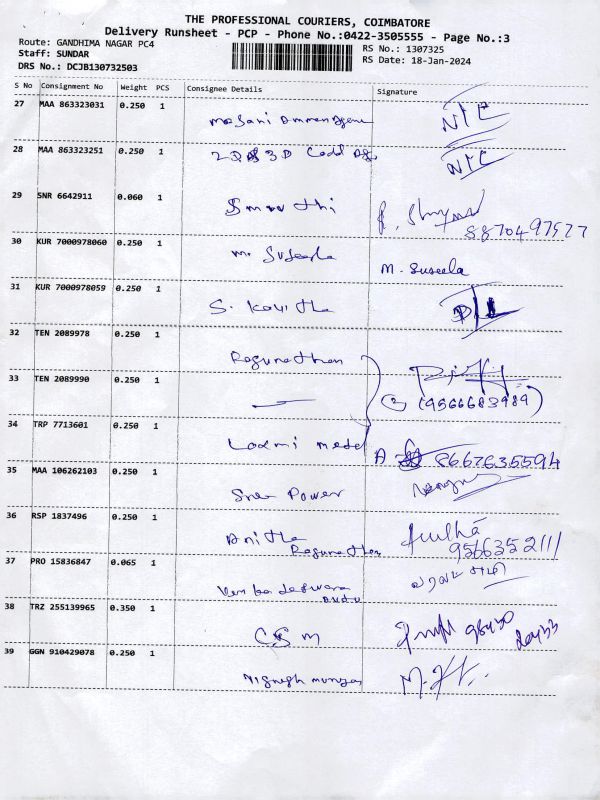 THE PROFESSIONAL COURIERS, COIMBATORE
Delivery Runsheet - PCP - Phone No.:0422-3505555 - Page No.:3
Route: GANDHIMA NAGAR PC4
RS No.: 1307325
Staff: SUNDAR
RS Date: 18-Jan-2024
DRS No.: DCJB130732503
S No Consignment No Weight PCS Consignee Details Signature
27 MAA 863323031 0.250 1
28 MAA 863323251 0.250 1
29 SNR 6642911 0.060 1
Smruthi
8870497527
30 KUR 7000978060 0.250 1
M. Suseela M. Suseela
31 KUR 7000978059 0.250 1
S. Kavitha
32 TEN 2089978 0.250 1
Ragunathan
33 TEN 2089990 0.250 1
(9566683989)
34 TRP 7713601 0.250 1
Laxmi Metal 8667635594
35 MAA 106262103 0.250 1
Sree Power
36 RSP 1837496 0.250 1
Anitha
Ragunathan 9566352111
37 PRO 15836847 0.065 1
38 TRZ 255139965 0.350 1
CSM 98430
39 GGN 910429078 0.250 1